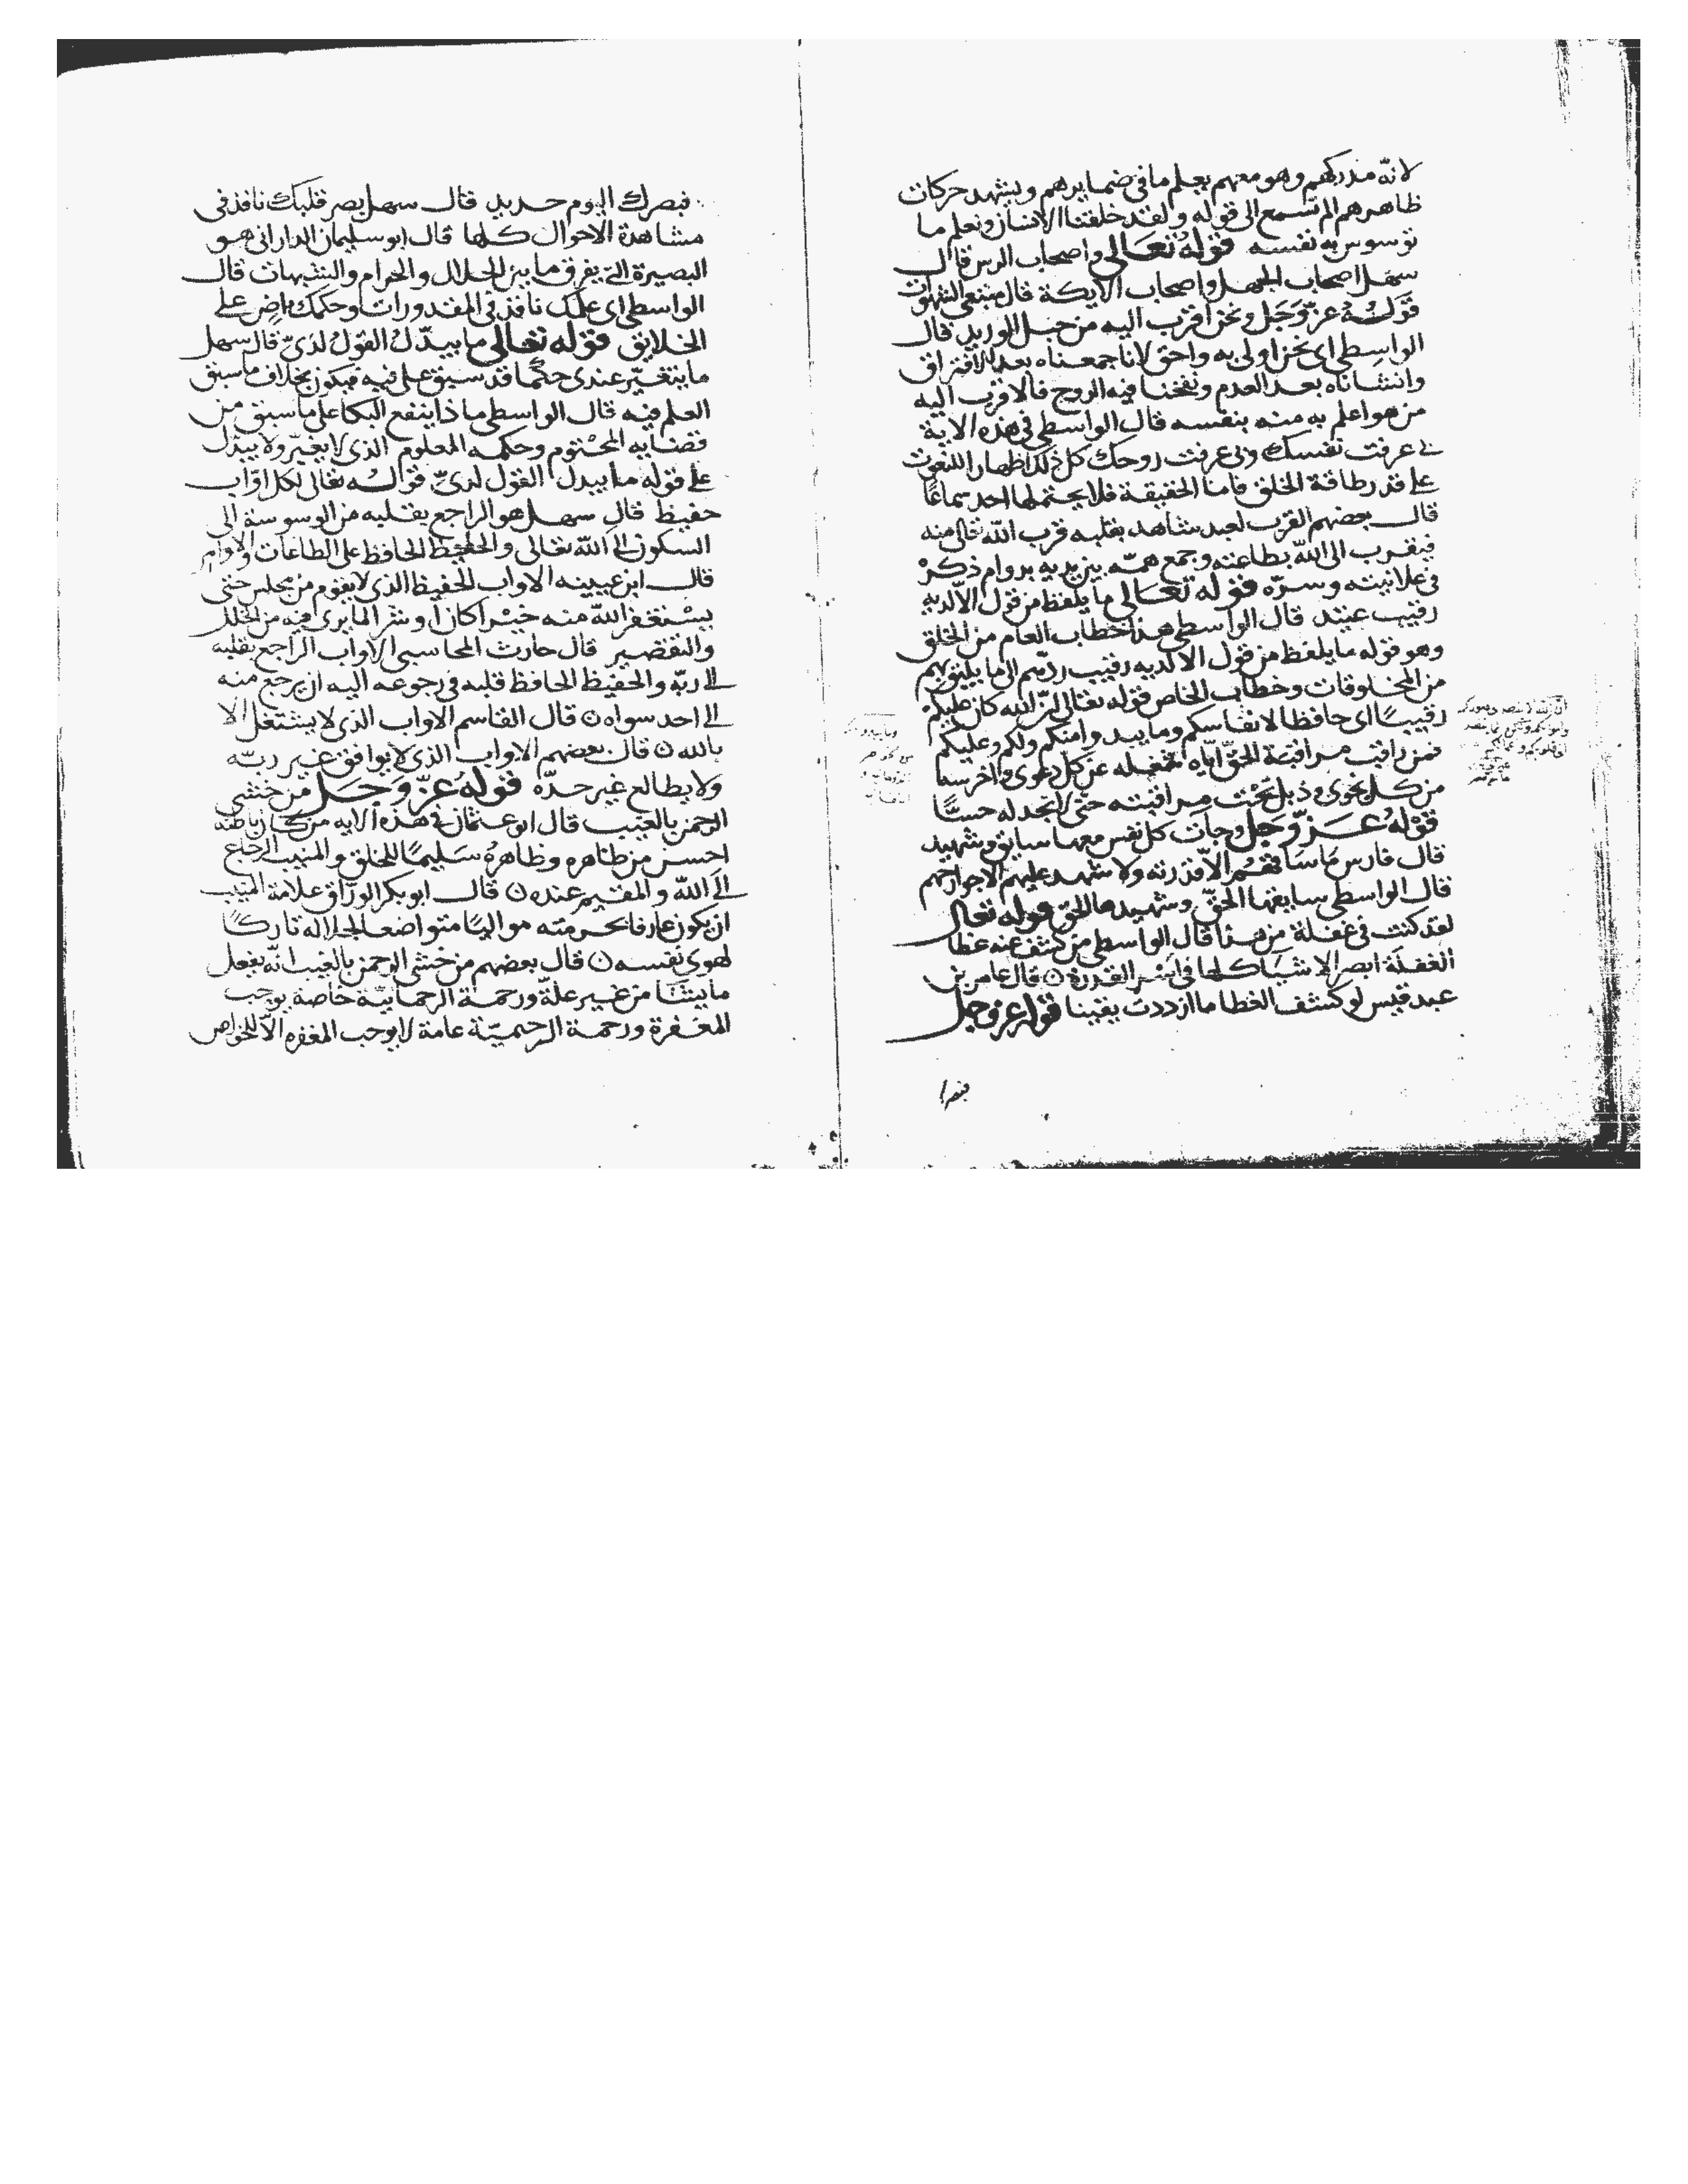 لانه مدركهم وهو معهم يعلم ما في ضمايرهم ويشهد حركات
ظاهرهم الم تسمع الى قوله ولقد خلقنا الانسان ونعلم ما
توسوس به نفسه قوله تعالى واصحاب الرس قال
سهل اصحاب الجهل واصحاب الايكة قال متبعي الشهوات
قوله عز وجل ونحن اقرب اليه من حبل الوريد قال
الواسطي اي نحن اولى به واحق لانا جمعناه بعد الافتراق
وانشاناه بعد العدم ونفخنا فيه الروح فالاقرب اليه
من هو اعلم به منه بنفسه قال الواسطي في هذه الاية
بي عرفت نفسك وبي عرفت روحك كل ذلك اظهار النعوت
على قدر طاقة الخلق فاما الحقيقة فلا يحتملها احد سماعًا
قال بعضهم القرب لعبد شاهد بقلبه قرب الله تعالى منه
فيقرب الى الله بطاعته وجمع همّه بين يديه بدوام ذكره
في علانيته وسرّه قوله تعالى ما يلفظ من قول الّا لديه
رقيب عتيد قال الواسطي هذا خطاب العام من الخلق
وهو قوله ما يلفظ من قول الا لديه رقيب ردّهم الى ما يليق بهم
من المخلوقات وخطاب الخاص قوله تعالى ان الله كان عليكم
رقيبًا اي حافظا لانفاسكم وما يبدوا منكم ولكم وعليكم
فمن راقب مراقبة الحقّ ايّاه شغله عن كل دعوى واخرسها
من كل نجوى وذبل تحت مراقبته حتى لا تجد له حسًّا
قوله عزّ وجل وجات كل نفس معها سايق وشهيد
قال فارس ما ساقهم الّا قدرته ولا شهد عليهم الا جوارحهم
قال الواسطي سايقها الحقّ وشهيدها الحقّ قوله تعالى
لقد كنت في غفلة من هذا قال الواسطي من كشف عنه غطا
الغفلة ابصر الاشيا كلها في اسر القدرة ن قال عامر بن
عبد قيس لو كشف الغطا ما ازددت يقينا قوله عز وجل
فبصرك اليوم حديد قال سهل بصر قلبك نافذ في
مشاهدة الاحوال كلها قال ابو سليمان الداراني هو
البصيرة التي يفرق ما بين الحلال والحرام والشبهات قال
الواسطي اي علمك نافذ في المقدورات وحكمك ماض على
الخلايق قوله تعالى ما يبدّل القول لديّ قال سهل
ما يتغيّر عندي حكما قد سبق علي فيه فيكون بخلاف ما سبق
العلم فيه قال الواسطي ما ذا ينفع البكا على ما سبق من
قضايه المحتوم وحكمه المعلوم الذي لا يغيّر ولا يبدل
على قوله ما يبدل القول لديّ قوله تعالى لكل اوّاب
حفيظ قال سهل هو الراجع بقلبه من الوسوسة الى
السكون الى الله تعالى والحفيظ الحافظ على الطاعات والاوامر
قال ابن عيينه الاواب الحفيظ الذي لا يقوم من مجلس حتى
يستغفر الله منه خيرا كان او شرا لما يرى فيه من الخلل
والتقصير قال حارث المحاسبي الاواب الراجع بقلبه
الى ربّه والحفيظ الحافظ قلبه في رجوعه اليه ان يرجع منه
الى احد سواه ن قال القاسم الاواب الذي لا يشتغل الا
بالله ن قال بعضهم الاواب الذي لا يوافق غير ربّه
ولا يطالع غير حدّه قوله عزّ وجل من خشي
الرحمن بالغيب قال ابو عثمان في هذه الايه من كان باطنه
احسن من ظاهره وظاهره سليمًا للخلق والمنيب الرجاع
الى الله والمقيم عنده ن قال ابو بكر الورّاق علامة المنيب
ان يكون عارفا بحرمته مواليًا متواضعا لجلاله تاركًا
لهوى نفسه ن قال بعضهم من خشي الرحمن بالغيب انّه يفعل
ما يشا من غير علّة ورحمة الرحمانيّة خاصة يوجب
المغفرة ورحمة الرحيميّة عامة لا يوجب المغفره الّا للخواص